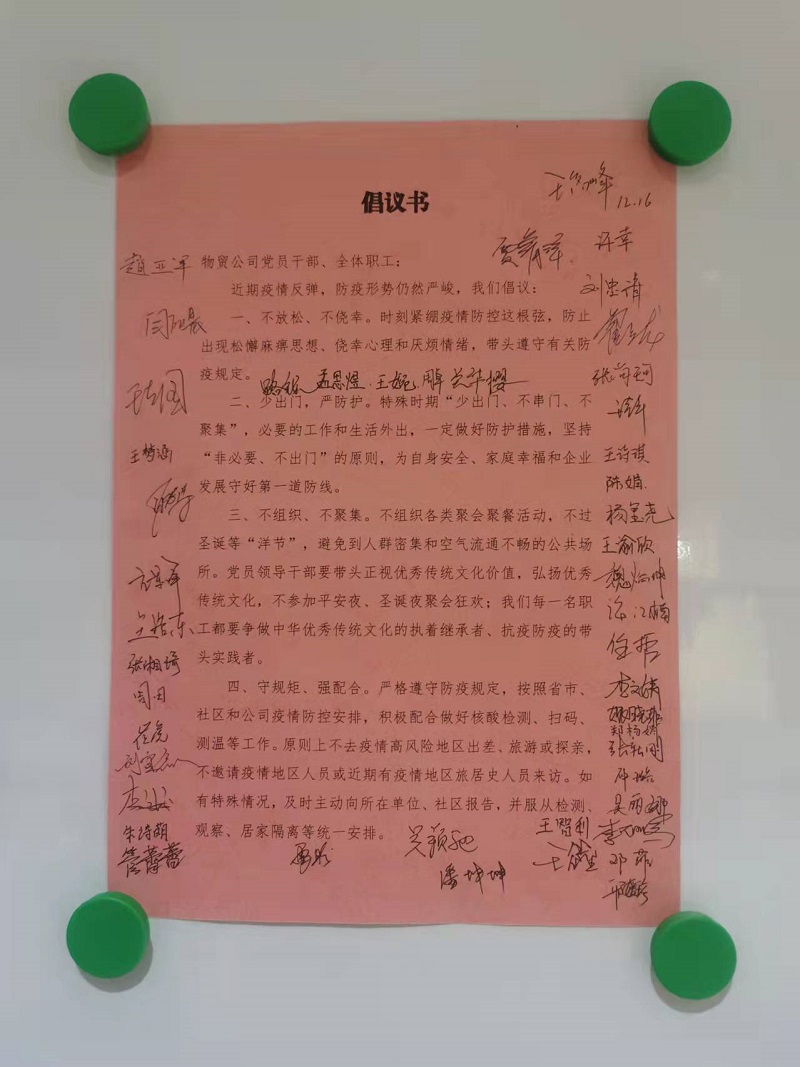 倡议书
12.16
许幸
赵亚军
物贸公司党员干部、全体职工：
近期疫情反弹，防疫形势仍然严峻，我们倡议：
一、不放松、不侥幸。时刻紧绷疫情防控这根弦，防止
出现松懈麻痹思想、侥幸心理和厌烦情绪，带头遵守有关防
疫规定。
孟思煜
二、少出门，严防护。特殊时期“少出门、不串门、不
聚集”，必要的工作和生活外出，一定做好防护措施，坚持
王梦涵
王诗琪
“非必要、不出门”的原则，为自身安全、家庭幸福和企业
陈娟
发展守好第一道防线。
三、不组织、不聚集。不组织各类聚会聚餐活动，不过
圣诞等“洋节”，避免到人群密集和空气流通不畅的公共场
王瑜欣
所。党员领导干部要带头正视优秀传统文化价值，弘扬优秀
传统文化，不参加平安夜、圣诞夜聚会狂欢；我们每一名职
工都要争做中华优秀传统文化的执着继承者、抗疫防疫的带
头实践者。
张湘琦
四、守规矩、强配合。严格遵守防疫规定，按照省市、
李文婧
社区和公司疫情防控安排，积极配合做好核酸检测、扫码、
测温等工作。原则上不去疫情高风险地区出差、旅游或探亲，
不邀请疫情地区人员或近期有疫情地区旅居史人员来访。如
有特殊情况，及时主动向所在单位、社区报告，并服从检测、
吴丽娜
朱诗萌
观察、居家隔离等统一安排。
王智利
管蕾蕾
邓菲
潘坤坤